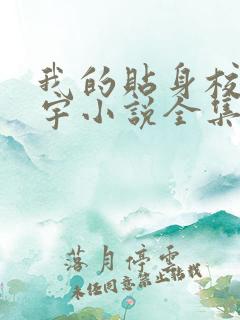 我的贴身校
宇小说全集
落月停云
未经同意禁止转载